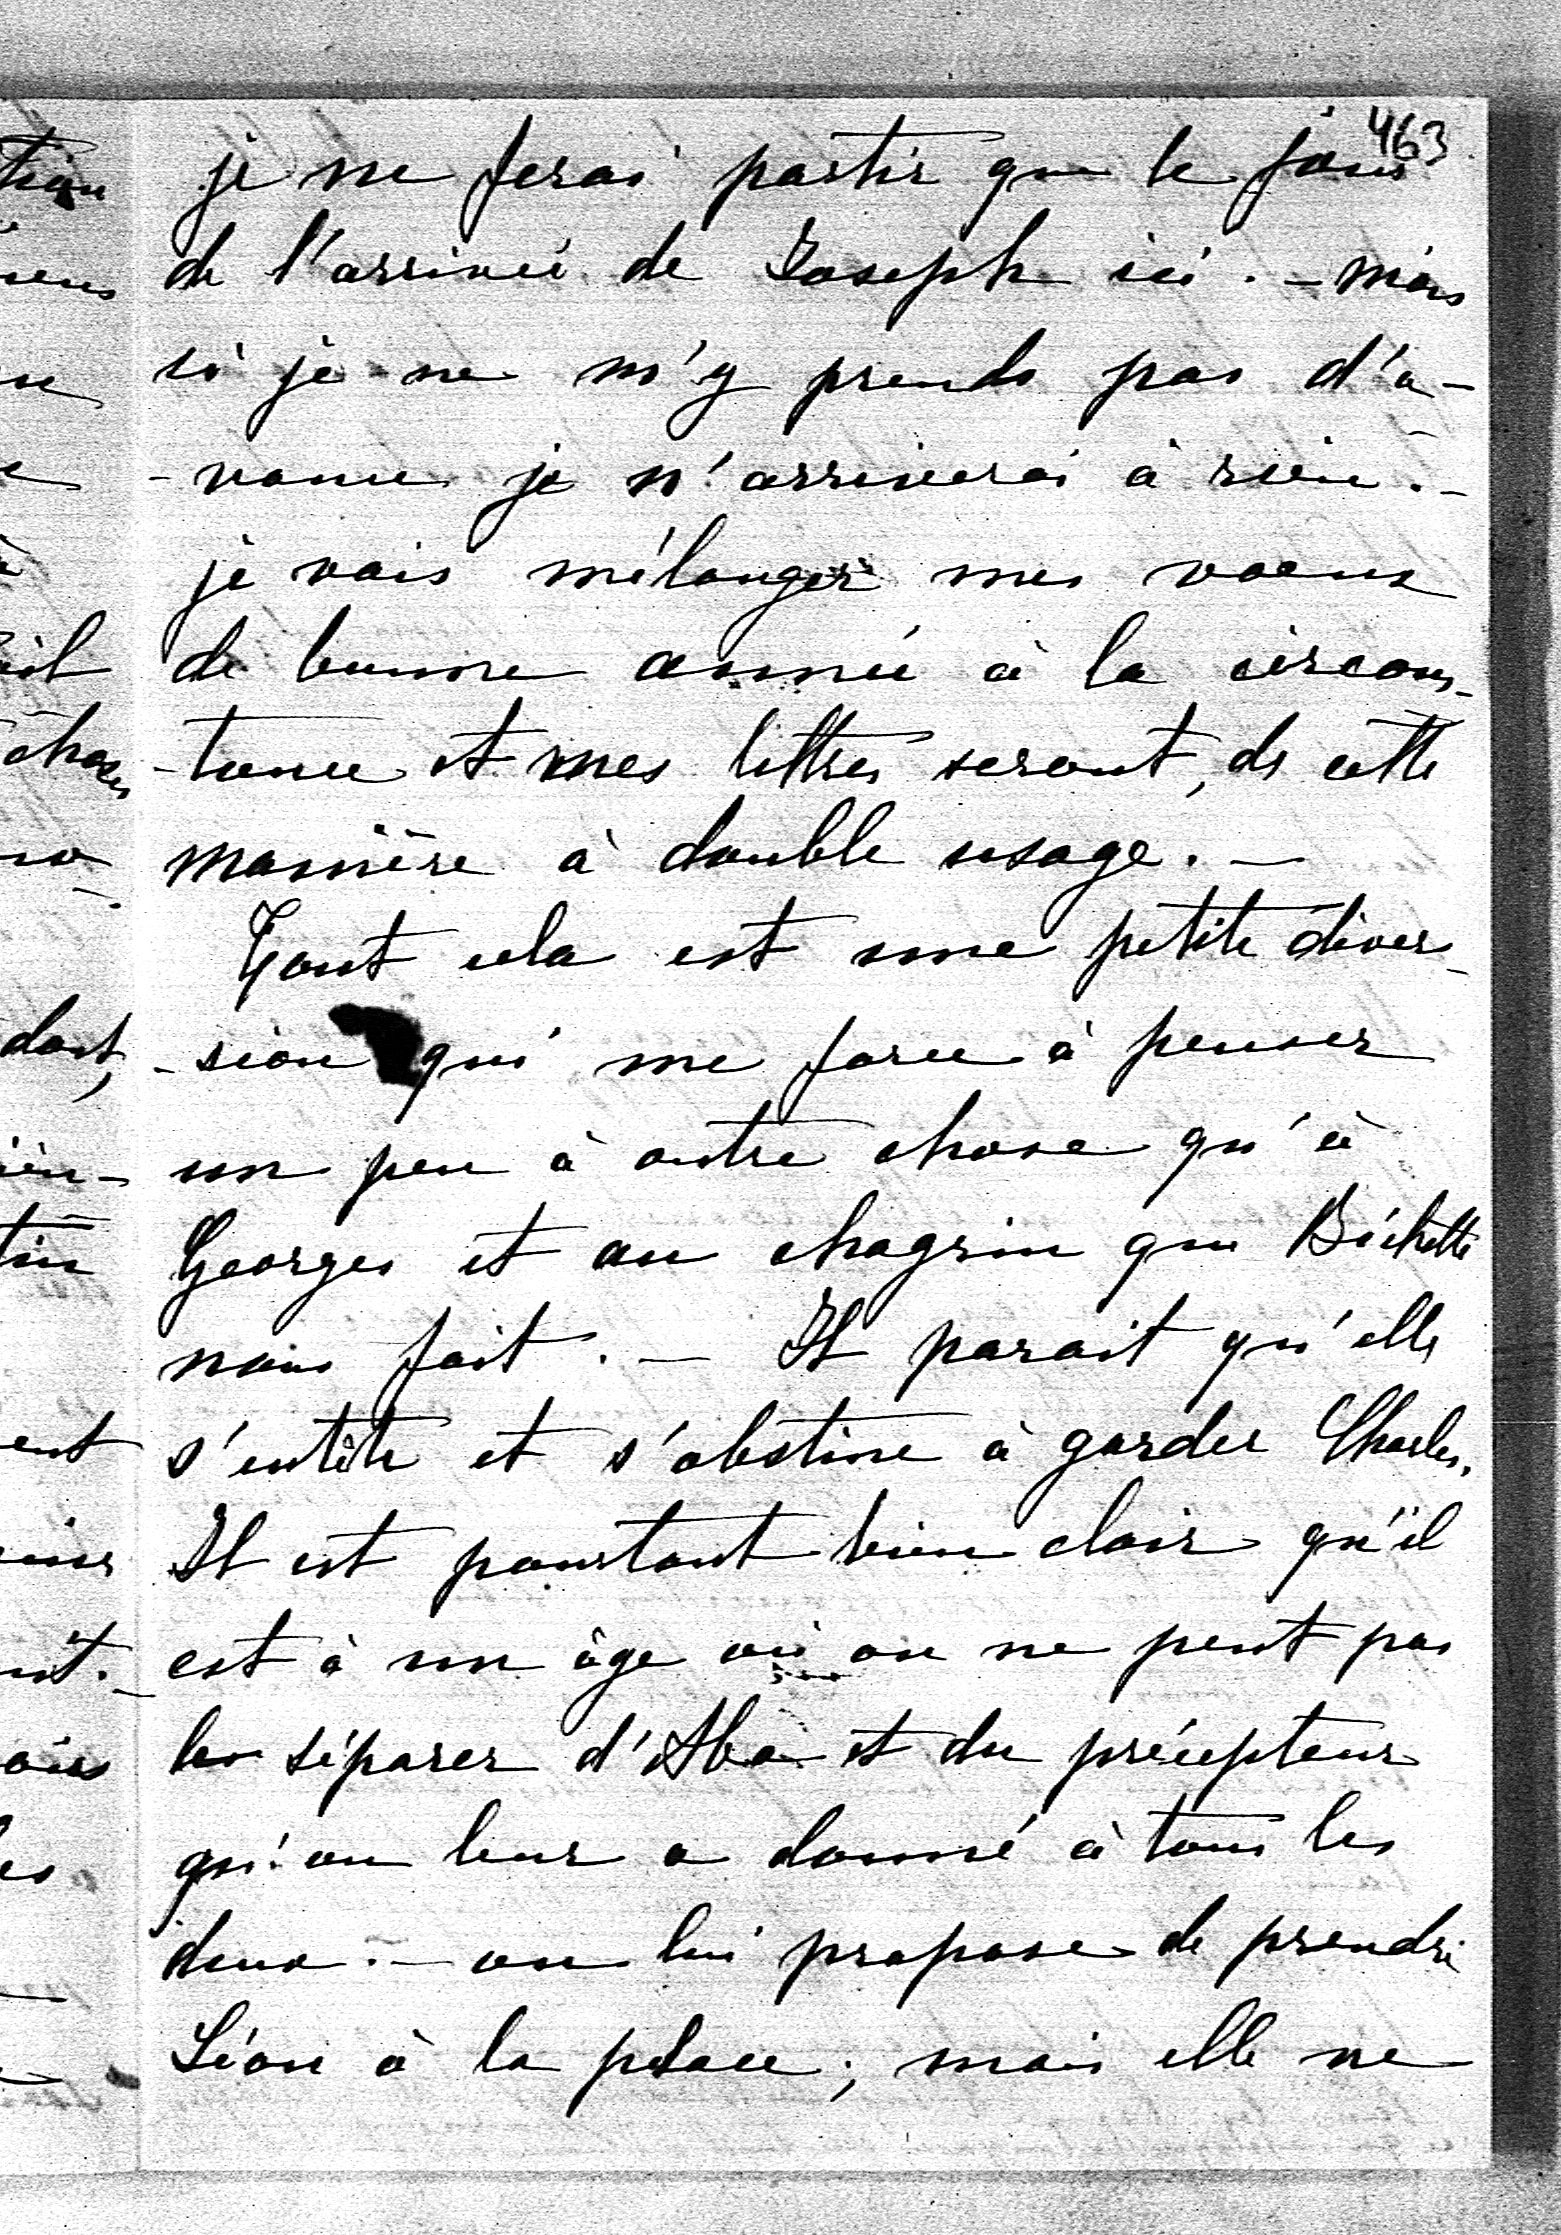 463
je ne ferai partir que le jour
de l'arrivée de Joseph ici. - mais
si je ne m'y prends pas d'a-
-vance je n'arriverai à rien. -
je vais mélanger mes voeux
de bonne année à la circons-
-tance et mes lettres seront, de cette
manière à double usage. -
Tout cela est une petite diver-
-sion qui me force à penser
un peu à autre chose qu'à
Georges et au chagrin que Béchette
nous fait. - Il parait qu'elle
s'entête et s'obstine à garder Charles.
Il est pourtant bien clair qu'il
est à un âge où on ne peut pas
les séparer d'Aba et du précepteur
qu'on leur a donné à tous les
deux. - on lui propose de prendre
Léon à la place; mais elle ne